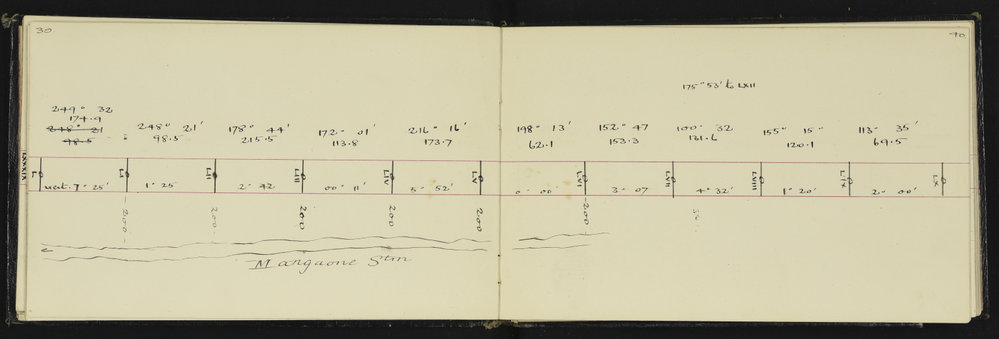 30
249° 32
174.9
248° 21
98.5
248° 21'
98.5
178° 44'
215.5
172° 01'
113.8
216° 16'
173.7
LI LII LIII LIV LV
vert. 7° 25' 1° 25 2° 42 00° 11' 5° 52'
200 200 200 200 200
Mangaone Stm
40
175° 53' to LXII
198° 13'
62.1
152° 47
153.3
100° 32
131.6
155° 15"
120.1
113° 35'
69.5
LVI LVII LVIII LIX LX
0° 00' 3° 07 4° 32' 1° 20' 2° 00'
200 50